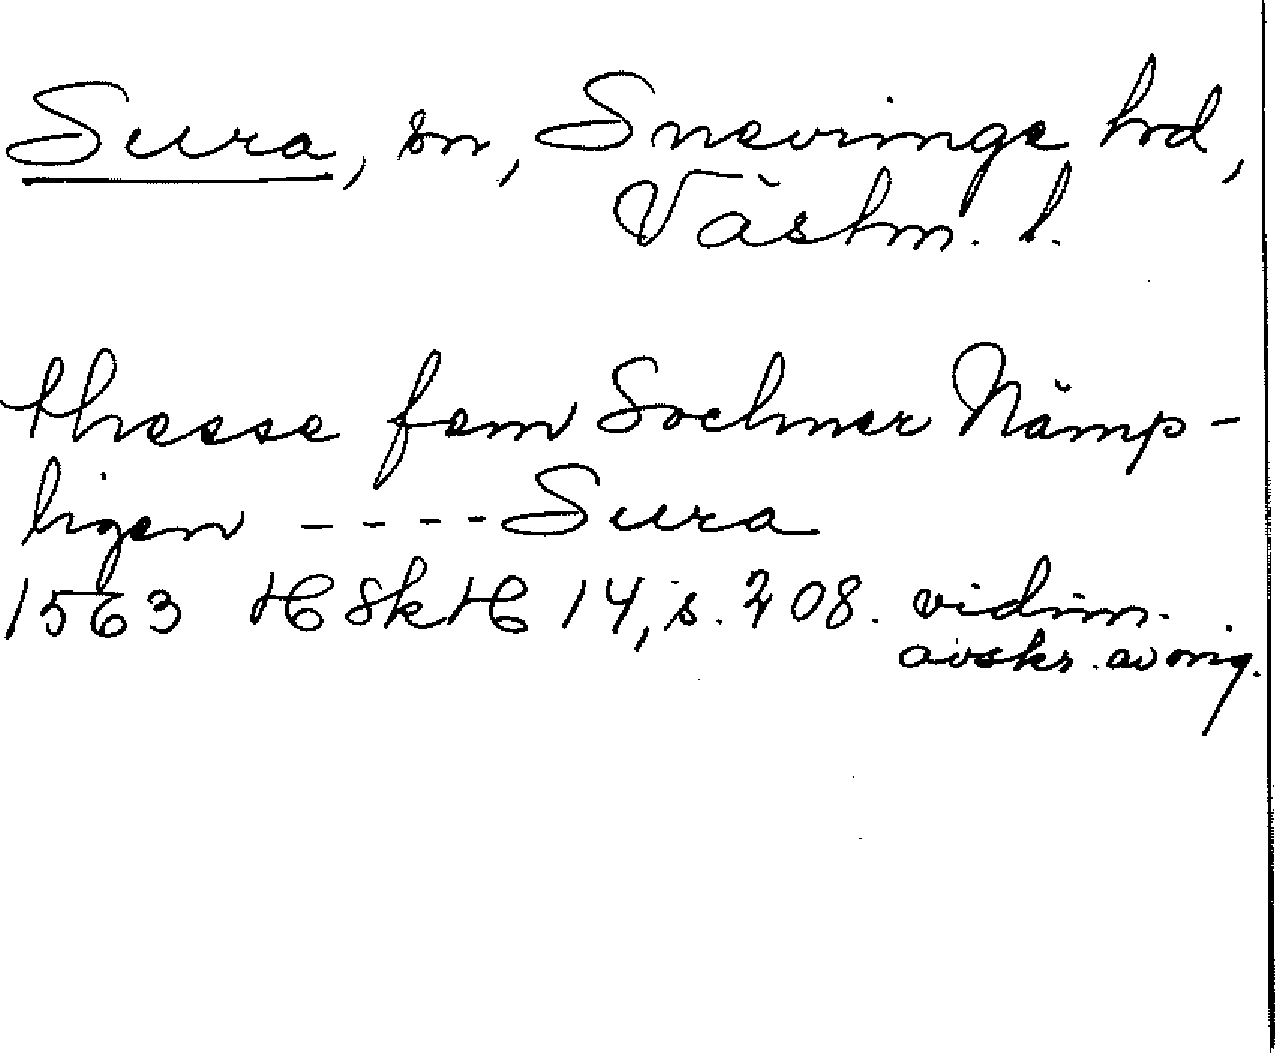 Sura, sn, Snevringe hrd,
Västm. l.
thesse fem Sochner Nämp-
ligen ---- Sura
1563 HSkH 14, s. 208. vidim.
avskr. av orig.